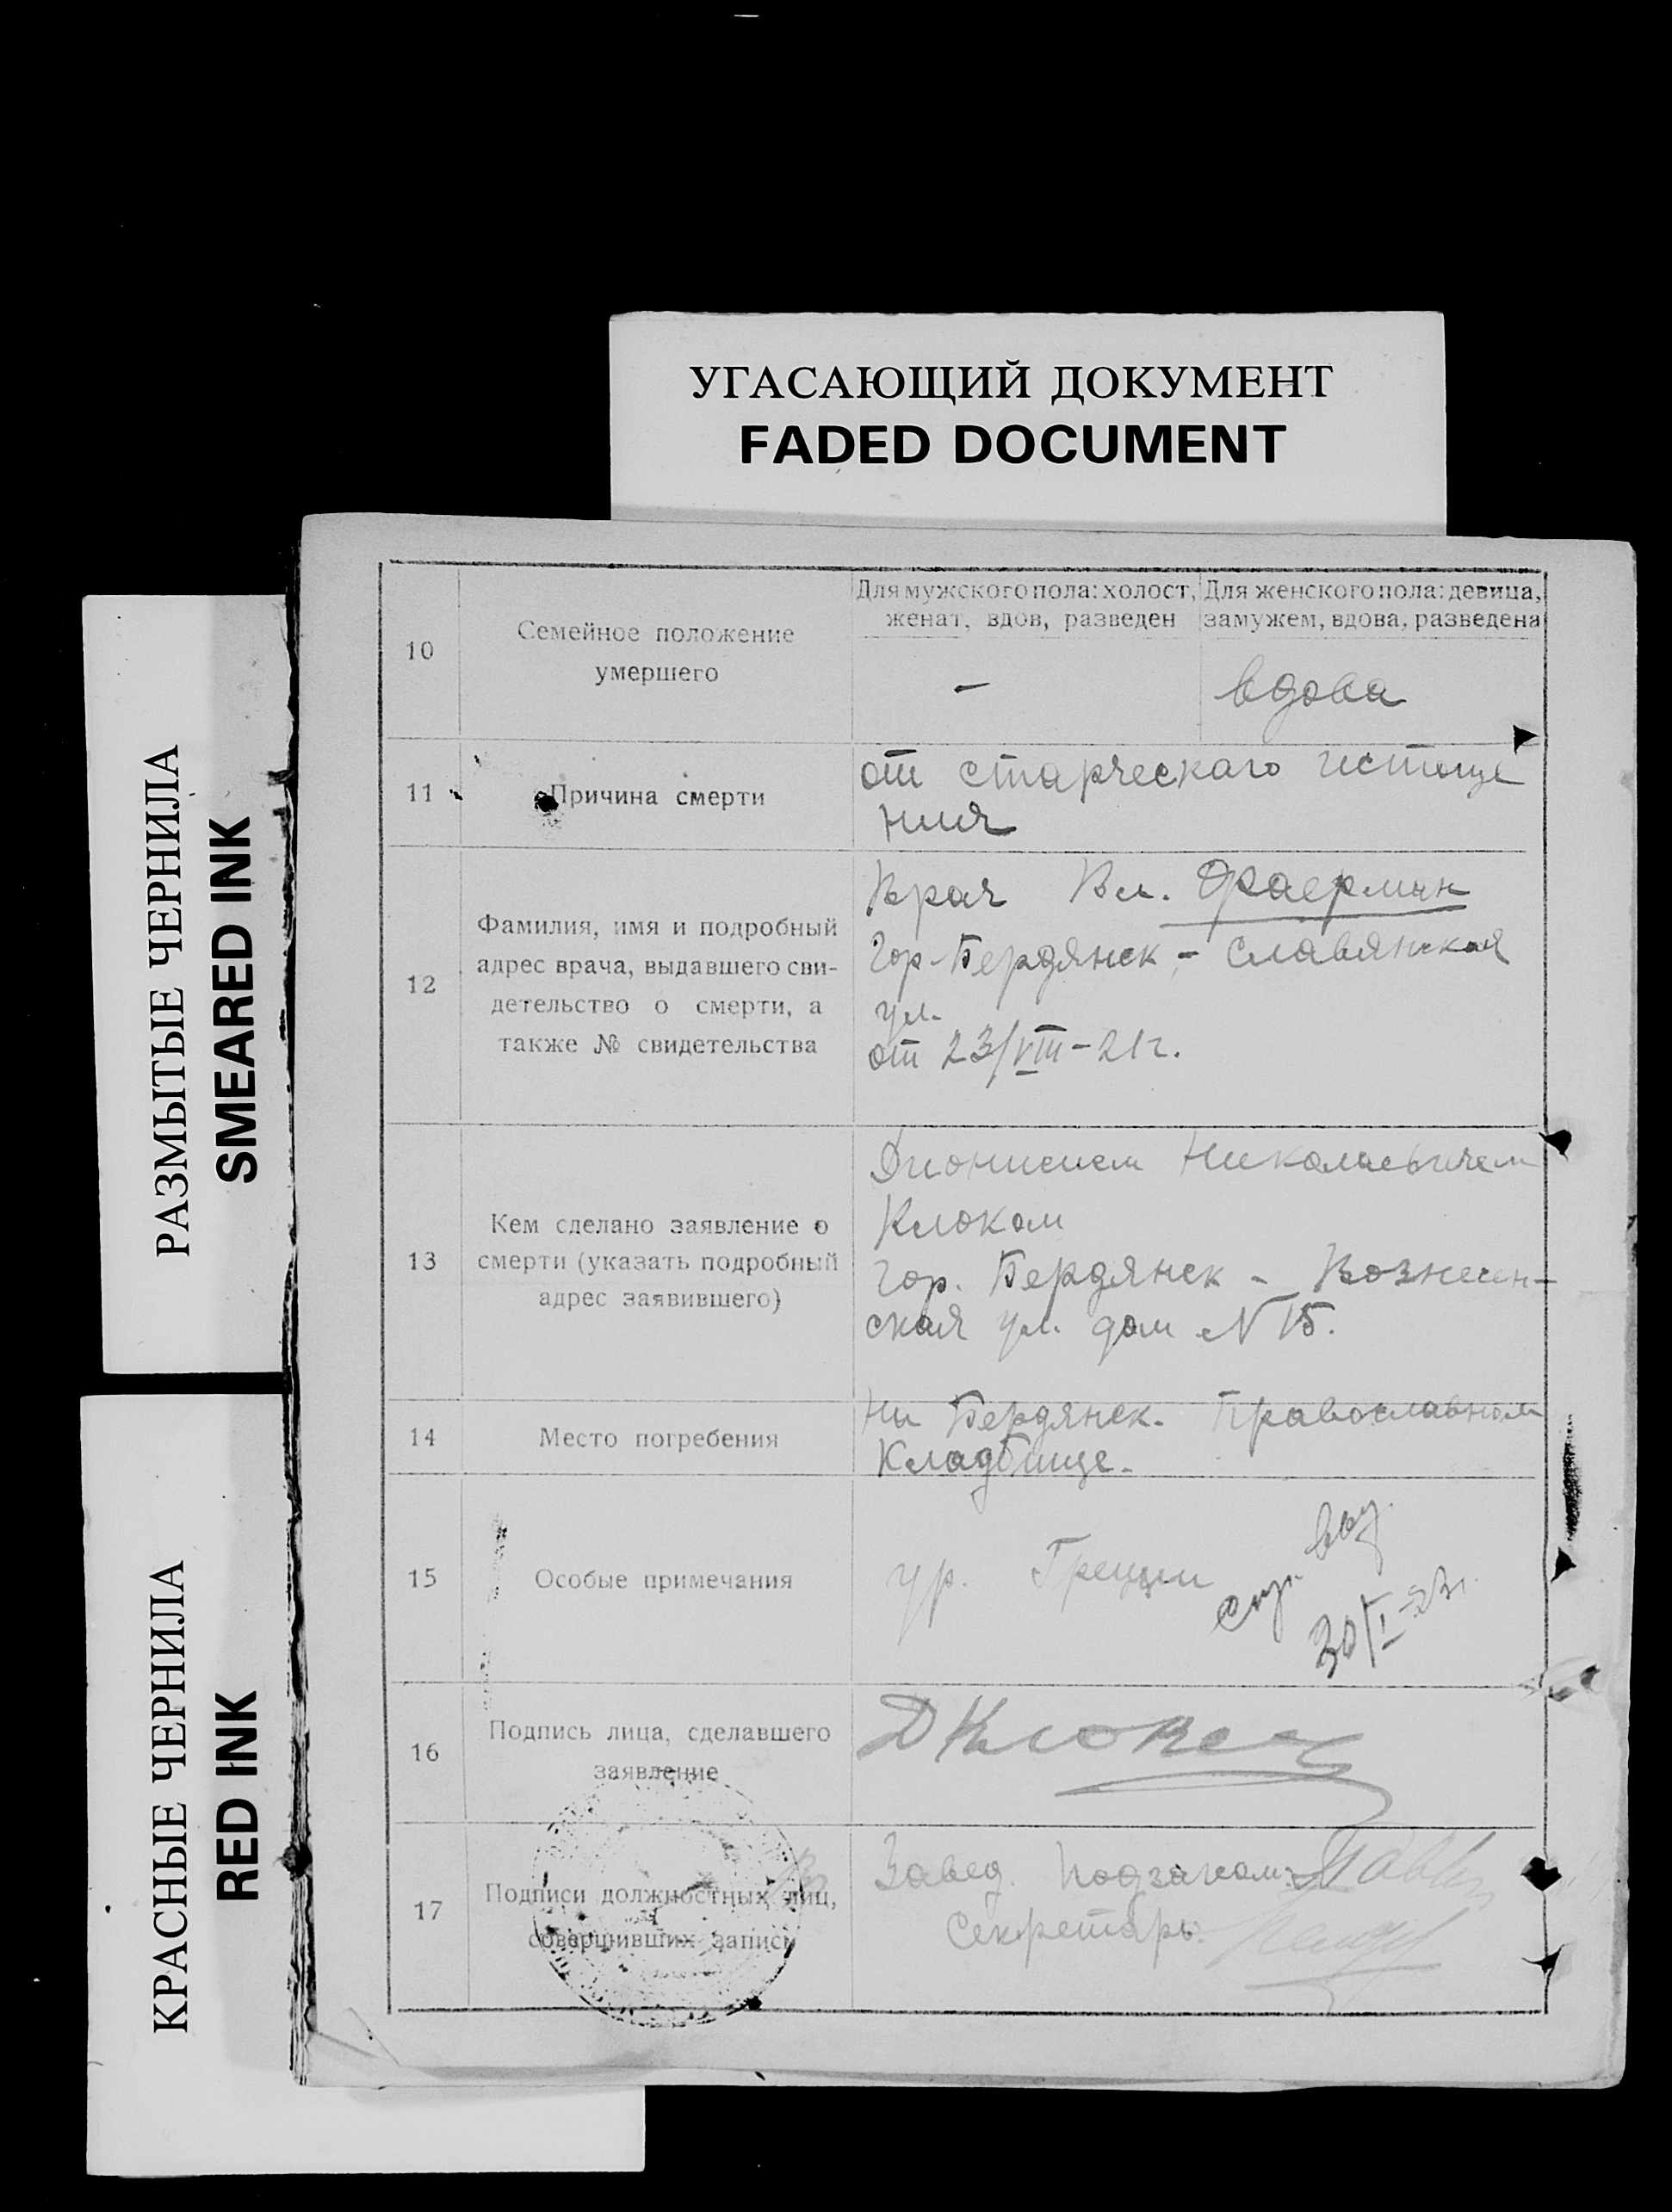 УГАСАЮЩИЙ ДОКУМЕНТ
FADED DOCUMENT
РАЗМЫТЫЕ ЧЕРНИЛА
SMEARED INK
КРАСНЫЕ ЧЕРНИЛА
RED INK
10
Семейное положение
умершего
Для мужского пола: холост,
женат, вдов, разведен
Для женского пола: девица,
замужем, вдова, разведена
—
вдова
11
Причина смерти
от старческаго истоще
ния
12
Фамилия, имя и подробный
адрес врача, выдавшего сви-
детельство о смерти, а
также № свидетельства
Врач Вл. Фраерман
Гор. Бердянск - Славянская
ул.
от 23/VIII-21 г.
13
Кем сделано заявление о
смерти (указать подробный
адрес заявившего)
Дионисием Николаевичем
Клоком
гор. Бердянск - Вознесен-
ская ул. дом № 15.
14
Место погребения
На Бердянск. Православном
Кладбище.
15
Особые примечания
ур. Греции
30/I-23г.
16
Подпись лица, сделавшего
заявление
17
Подписи должностных лиц,
совершивших запись
Завед. Подзагсом:
Секретарь: